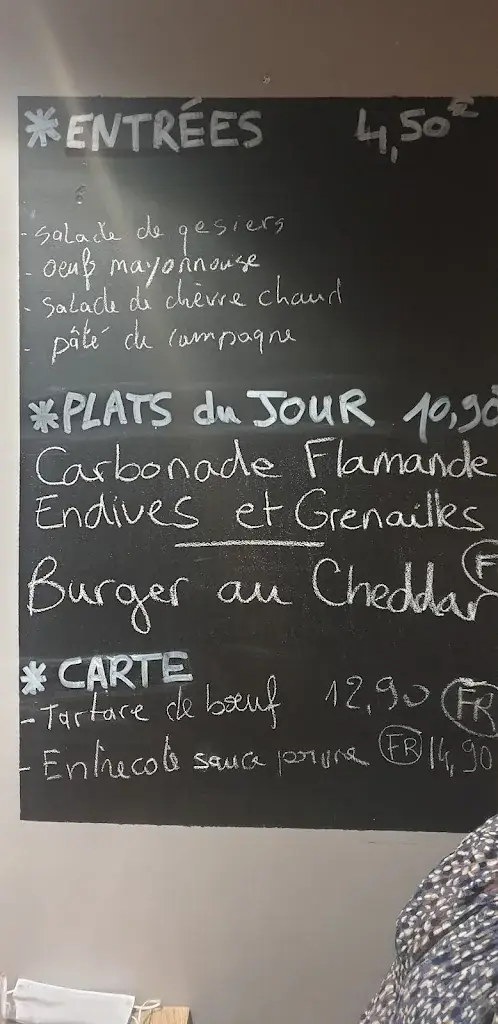 *ENTRÉES 4,50€
- salade de gesiers
- oeufs mayonnouse
- salade de chèvre chaud
- pâté de campagne
*PLATS du JOUR 10,90
Carbonade Flamande
Endives et Grenailles
Burger au Cheddar F
* CARTE
- Tartare de bœuf 12,90 FR
- Entrecote sauce poivre FR 14,90